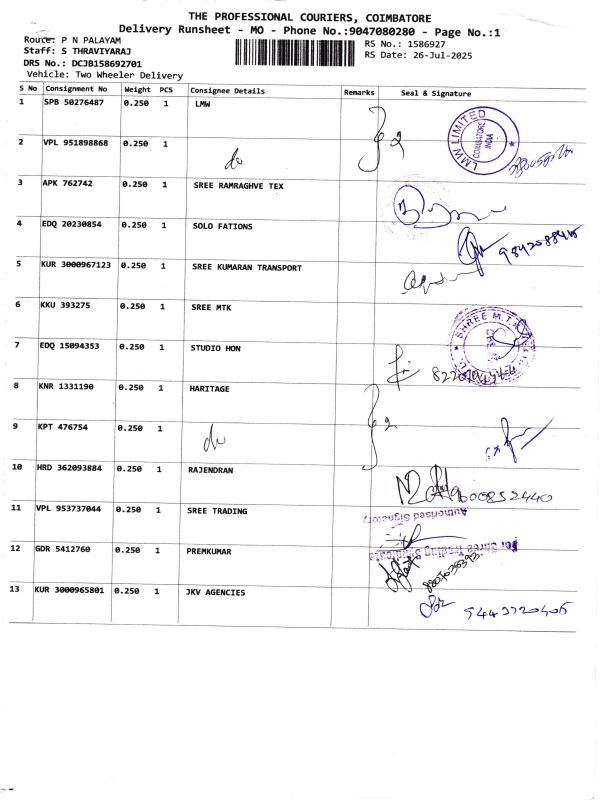 THE PROFESSIONAL COURIERS, COIMBATORE
Delivery Runsheet - MO - Phone No.:9047080280 - Page No.:1
Route: P N PALAYAM
RS No.: 1586927
Staff: S THRAVIYARAJ
RS Date: 26-Jul-2025
DRS No.: DCJB158692701
Vehicle: Two Wheeler Delivery
S No Consignment No Weight PCS Consignee Details Remarks Seal & Signature
1 SPB 50276487 0.250 1 LMW
LMW LIMITED COIMBATORE INDIA
2 VPL 951898868 0.250 1 do
3 APK 762742 0.250 1 SREE RAMRAGHVE TEX
4 EDQ 20230854 0.250 1 SOLO FATIONS
5 KUR 3000967123 0.250 1 SREE KUMARAN TRANSPORT
6 KKU 393275 0.250 1 SREE MTK
SHREE M.T.K
7 EDQ 15094353 0.250 1 STUDIO HON
8 KNR 1331190 0.250 1 HARITAGE
9 KPT 476754 0.250 1 do
10 HRD 362093884 0.250 1 RAJENDRAN
9600852440
11 VPL 953737044 0.250 1 SREE TRADING
Authorised Signatory
For Shree Trading Syndicate
12 GDR 5412760 0.250 1 PREMKUMAR
13 KUR 3000965801 0.250 1 JKV AGENCIES